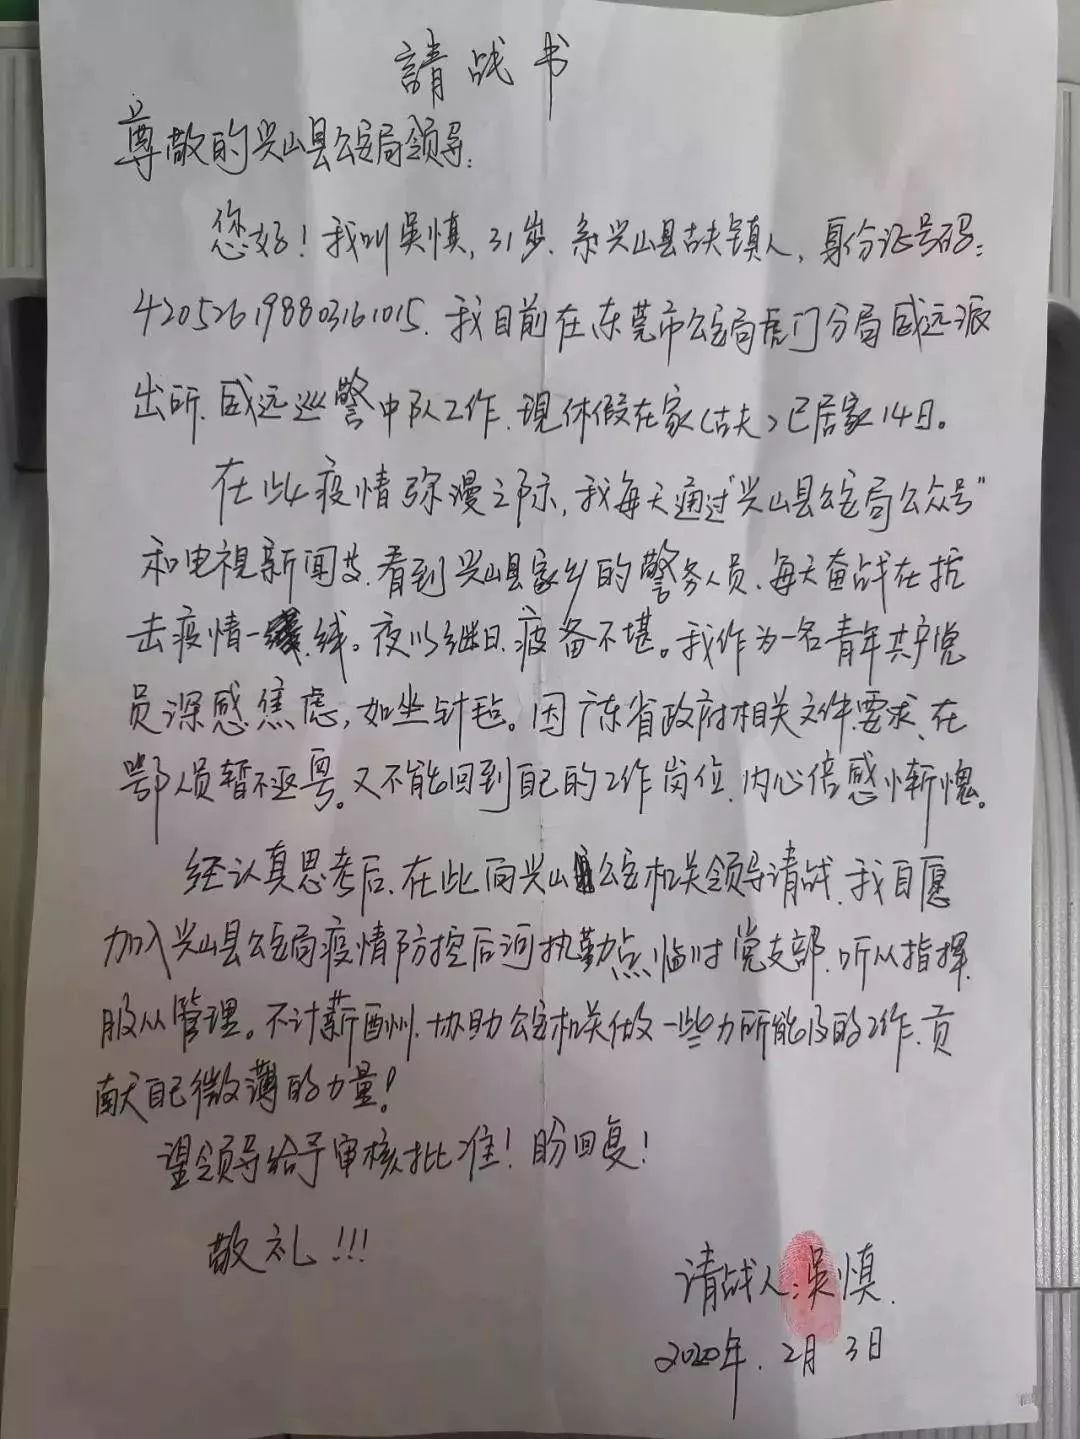 請战书
尊敬的兴山县公安局领导:
您好!我叫吴慎,31岁.系兴山县古夫镇人,身份证号码:
420526198803161015.我目前在东莞市公安局虎门分局威远派
出所.威远巡警中队工作.现休假在家(古夫)已居家14日。
在此疫情弥漫之际,我每天通过"兴山县公安局公众号"
和电视新闻等.看到兴山县家乡的警务人员、每天奋战在抗
击疫情一线。夜以继日.疲备不堪。我作为一名青年共产党
员深感焦虑,如坐针毡。因广东省政府相关文件要求、在
鄂人员暂不返粤。又不能回到自己的工作岗位.内心倍感惭愧。
经认真思考后.在此向兴山县公安机关领导请战.我自愿
加入兴山县公安局疫情防控后河执勤点临时党支部.听从指挥.
服从管理。不计薪酬.协助公安机关做一些力所能及的工作.贡
献自己微薄的力量!
望领导给予审核批准!盼回复!
敬礼!!!
请战人:吴慎.
2020年.2月3日